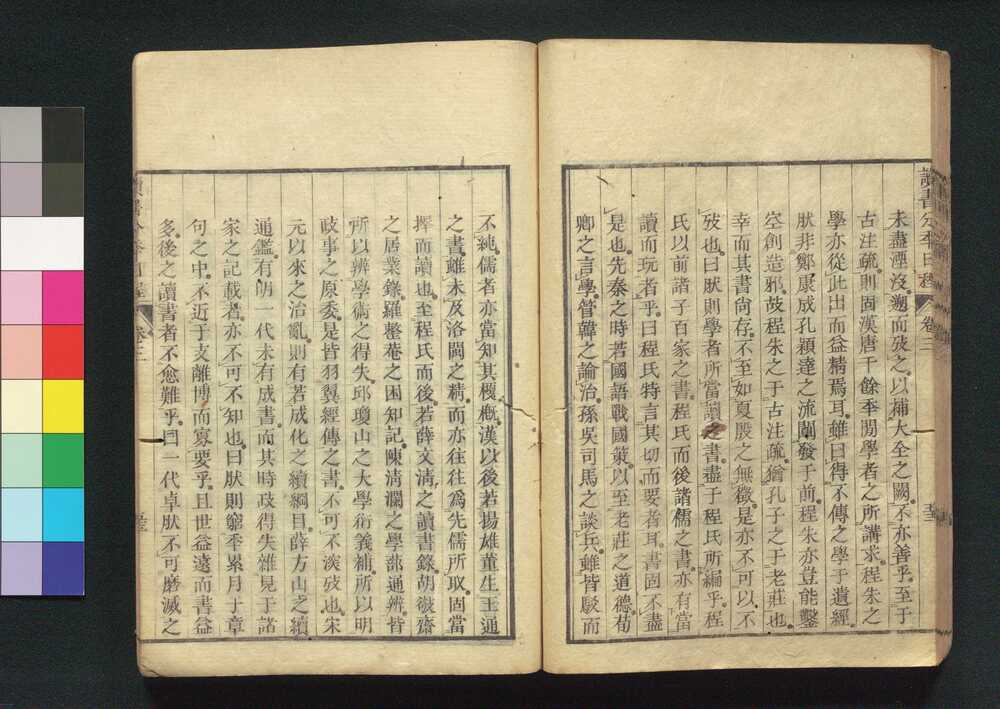 讀書分年日程 卷三
未盡湮沒𨗇而攷之以補大全之闕不亦善乎至于
古注疏則固漢唐千餘年閒學者之所講求程朱之
學亦從此出而益精焉耳雖曰得不傳之學于遺經
肰非鄭康成孔穎達之流闡發于前程朱亦豈能鑿
空創造邪故程朱之于古注疏猶孔子之于老莊也
幸而其書尙存不至如夏殷之無徵是亦不可以不
攷也曰肰則學者所當讀之書盡于程氏所編乎程
氏以前諸子百家之書程氏而後諸儒之書亦有當
讀而玩者乎曰程氏特言其切而要者耳書固不盡
是也先秦之時若國語戰國策以至老莊之道德荀
卿之言學管韓之論治孫吳司馬之談兵雖皆駁而
不純儒者亦當知其槪漢以後若揚雄董生王通
之書雖未及洛閩之精而亦往往爲先儒所取固當
擇而讀也至程氏而後若薛文淸之讀書錄胡敬齋
之居業錄羅整菴之困知記陳淸瀾之學蔀通辨皆
所以辨學術之得失邱瓊山之大學衍義補所以明
政事之原委是皆羽翼經傳之書不可不深攷也宋
元以來之治亂則有若成化之續綱目薛方山之續
通鑑有明一代未有成書而其時政得失雜見于諸
家之記載者亦不可不知也曰肰則窮年累月于章
句之中不近于支離博而寡要乎且世益遠而書益
多後之讀書者不愈難乎曰一代卓肰不可磨滅之
讀書分年日程 卷三